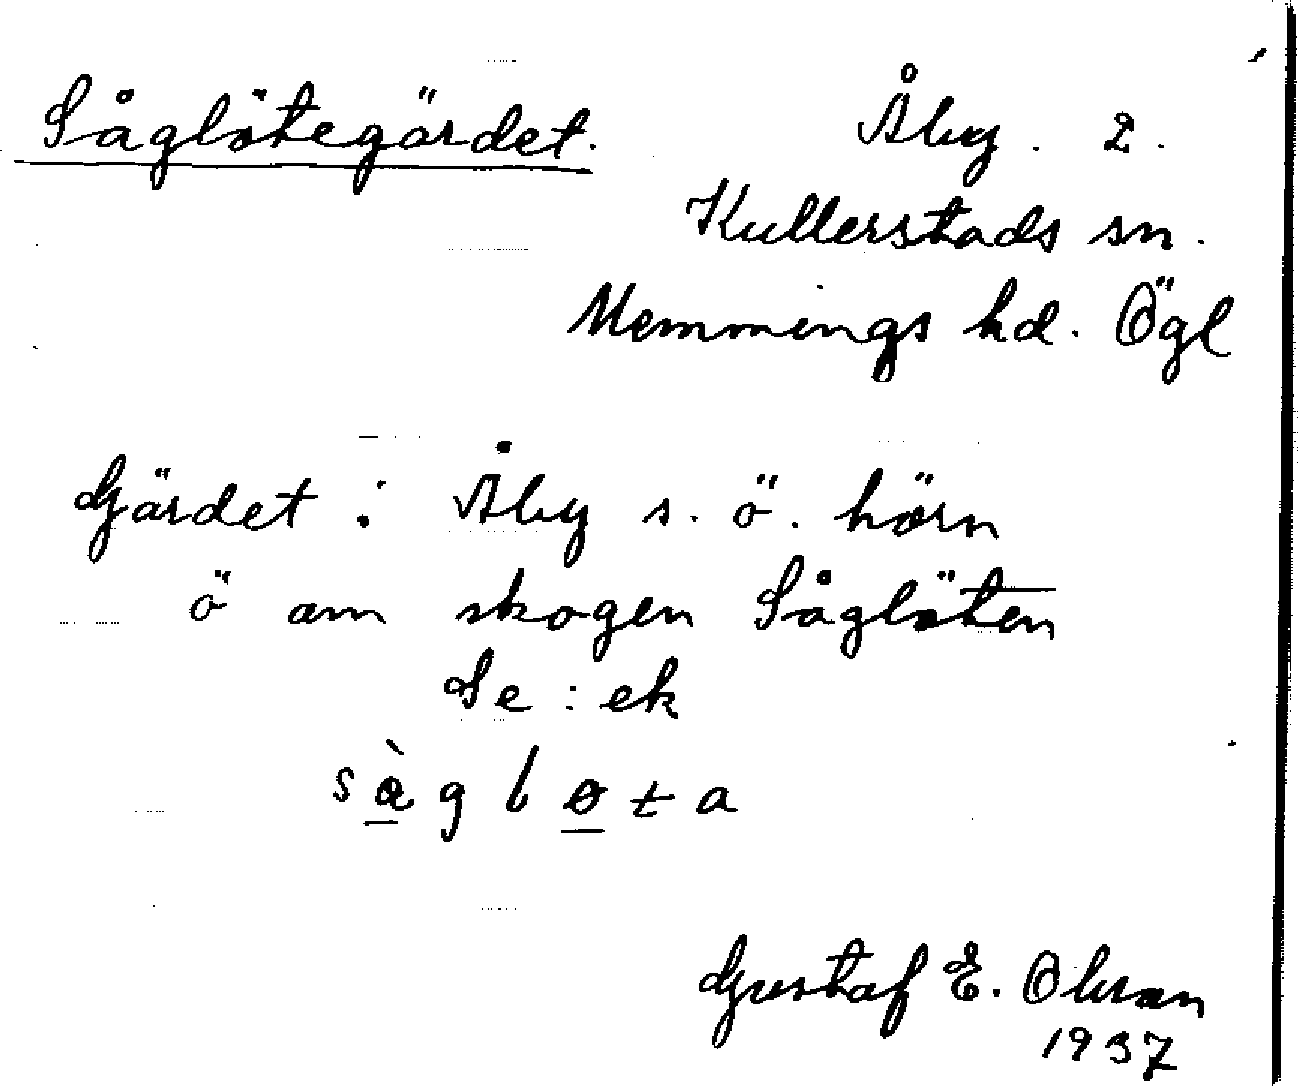 Såglötegärdet. Åby. 2.
Kullerstads sn.
Memmings hd. Ögl
Gärdet i Åby s. ö. hörn
ö om skogen Såglöten
Se : ek
sàgløta
Gustaf E. Olsson
1937